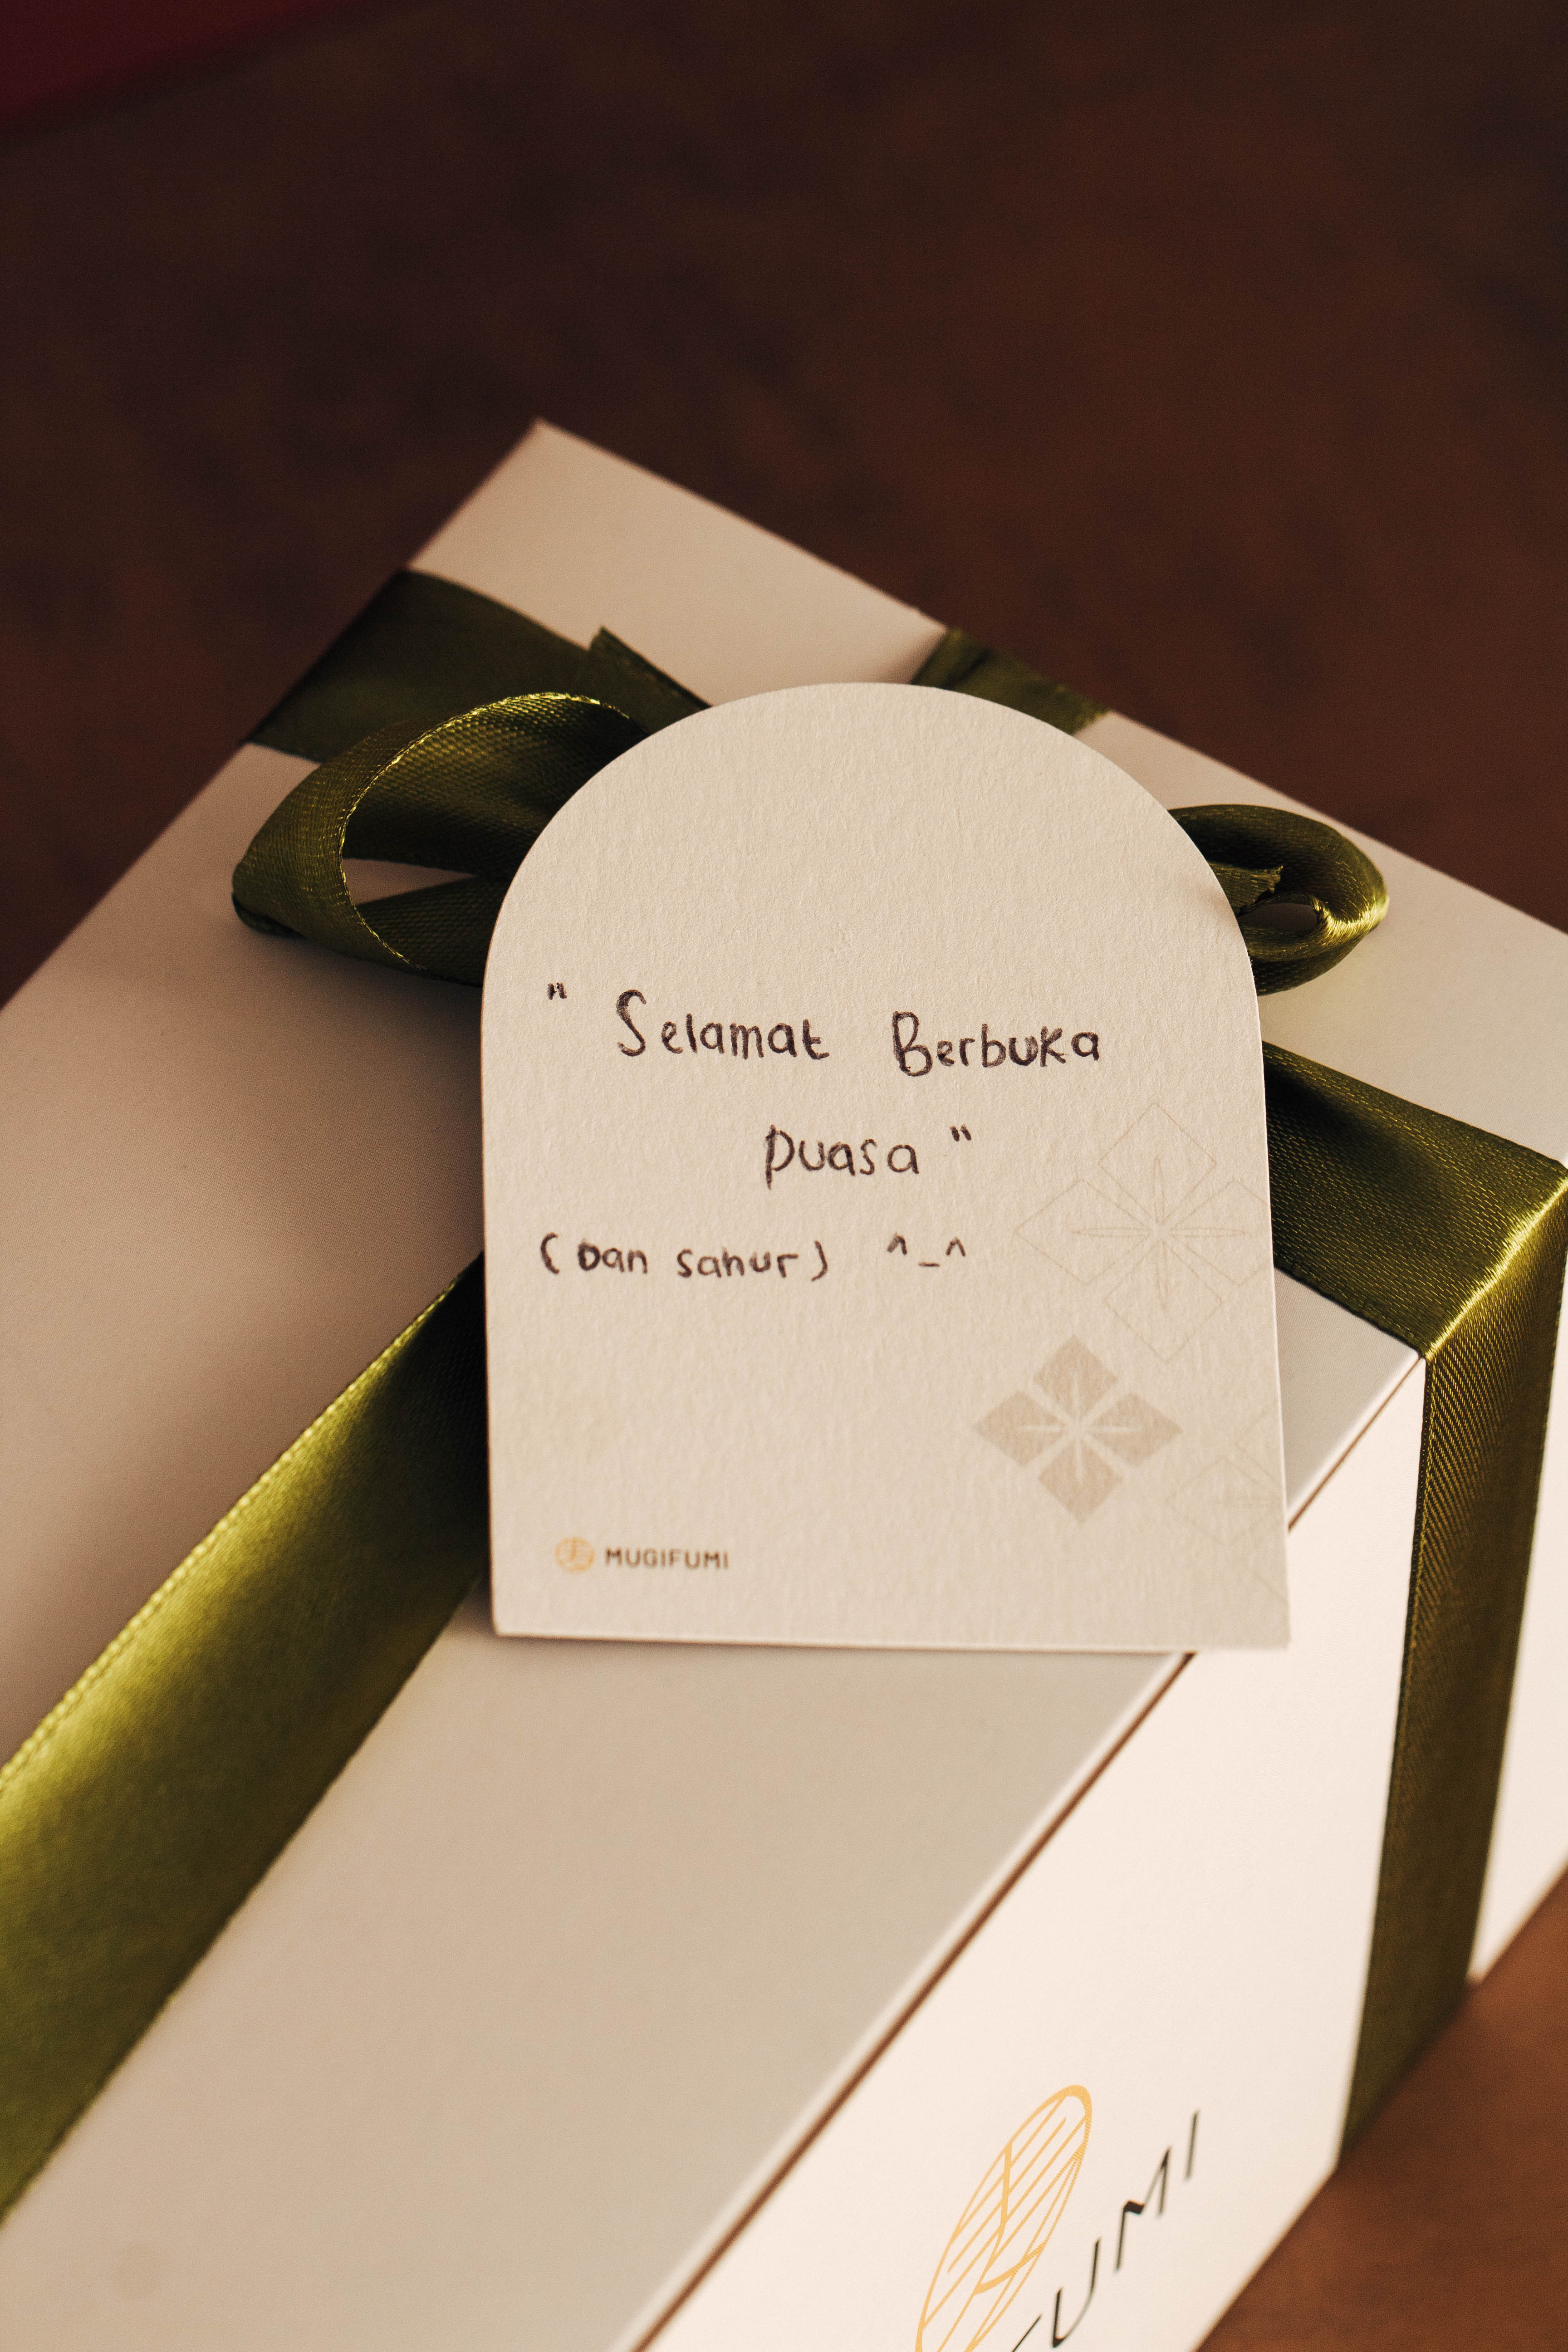 " Selamat Berbuka
puasa "
(Dan sahur) ^_^
MUGIFUMI
FUMI